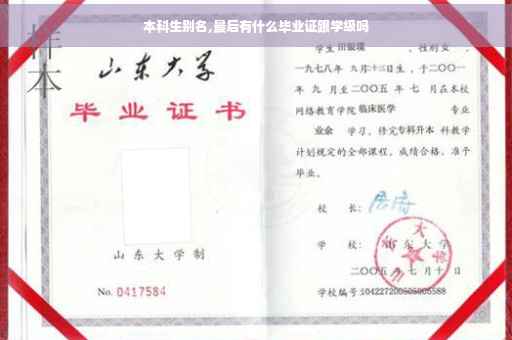 本科生别名,最后有什么毕业证跟学级吗
样本
山东大学
毕业证书
山东大学制
No. 0417584
学生 田银瑞 ，性别 女 ，
一九七八年 九月十三日生，于二〇〇一
年 九 月至二〇〇五 年 七 月在本校
网络教育学院 临床医学 专业
业余 学习，修完 专科升本 科教学
计划规定的全部课程，成绩合格，准予
毕业。
校 长:
学 校: 山东大学
二〇〇五 年 七 月 十 日
学校编号:104227200505005588